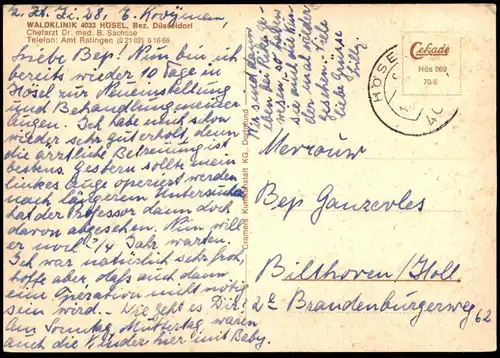 z. Zt. Zi. 28, E. Kooymen,
WALDKLINIK 4033 HÖSEL, Bez. Düsseldorf
Chefarzt Dr. med. B. Sachsse
Telefon: Amt Ratingen (02102) 6 16 66
Liebe Bep! Nun bin ich
bereits wieder 10 Tage in
Hösel zur Neueinstellung
und Behandlung meiner
Augen. Ich habe mich schon
wieder sehr gut erholt, denn
die ärztliche Betreuung ist
bestens. Gestern sollte mein
linkes Auge operiert werden
nach längerem Untersuchen
hat der Professor dann doch
davon abgesehen. Nun will
er noch 1/4 Jahr warten.
Ich war natürlich sehr froh,
hoffe aber, daß auch dann
eine Operation nicht nötig
sein wird. – Wie geht es Dir?
Am Sonntag, Muttertag waren
auch die Kinder hier mit Baby.
Wir sind dann
eben bei
so haben
sie auch
der
gesehen. Viele
liebe Grüsse
Cramers Kunstanstalt KG., Dortmund
HÖSEL
Cekade
Hös 069
70/6
Mevrouw
Bep Ganzevles
Bilthoven/Holl.
2e Brandenburgerweg 62